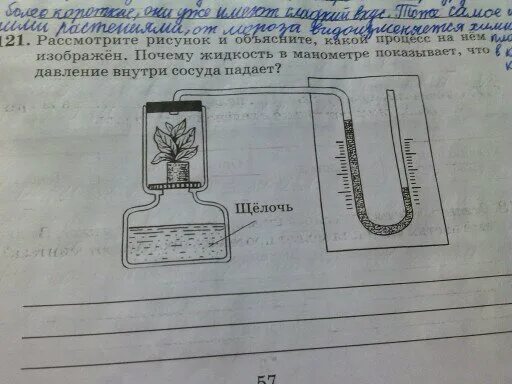 более короткие, они уже имеют сладкий вкус. Тоже самое и
ними растениями, от мороза видоизменяется
121. Рассмотрите рисунок и объясните, какой процесс на нём
изображён. Почему жидкость в манометре показывает, что в
давление внутри сосуда падает?
Щёлочь
57